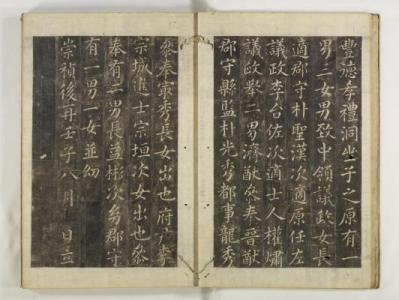 豐德孝禮洞坐子之原有一
男二女男致中領議政女長
適郡守朴聖漢次適原任左
議政李台佐次適士人權
議政二男濬猷參奉晉猷
郡守縣監朴光秀都事龍秀
參奉秀長女出也府尹李
宗城進士宗垣次女出也參
奉有男長益彬次郡守
有一男一女並幼
崇禎後再壬子八月 日立